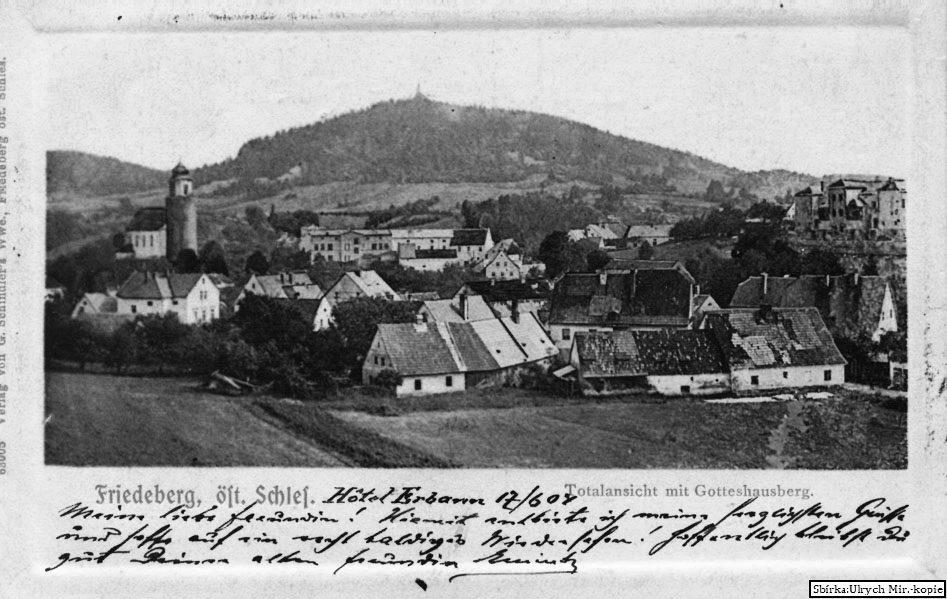 Verlag von G. Schindler's Wwe., Friedeberg öst. Schles.
Friedeberg, öst. Schles. Hôtel 17/6 08 Totalansicht mit Gotteshausberg.
Meine liebe Freundin! Hiemit entbiete ich meine herzlichsten Grüße
und hoffe auf ein recht baldiges Wiedersehen! Hoffentlich bleibst Du
gut Deiner alten Freundin
Sbírka:Ulrych Mir.-kopie